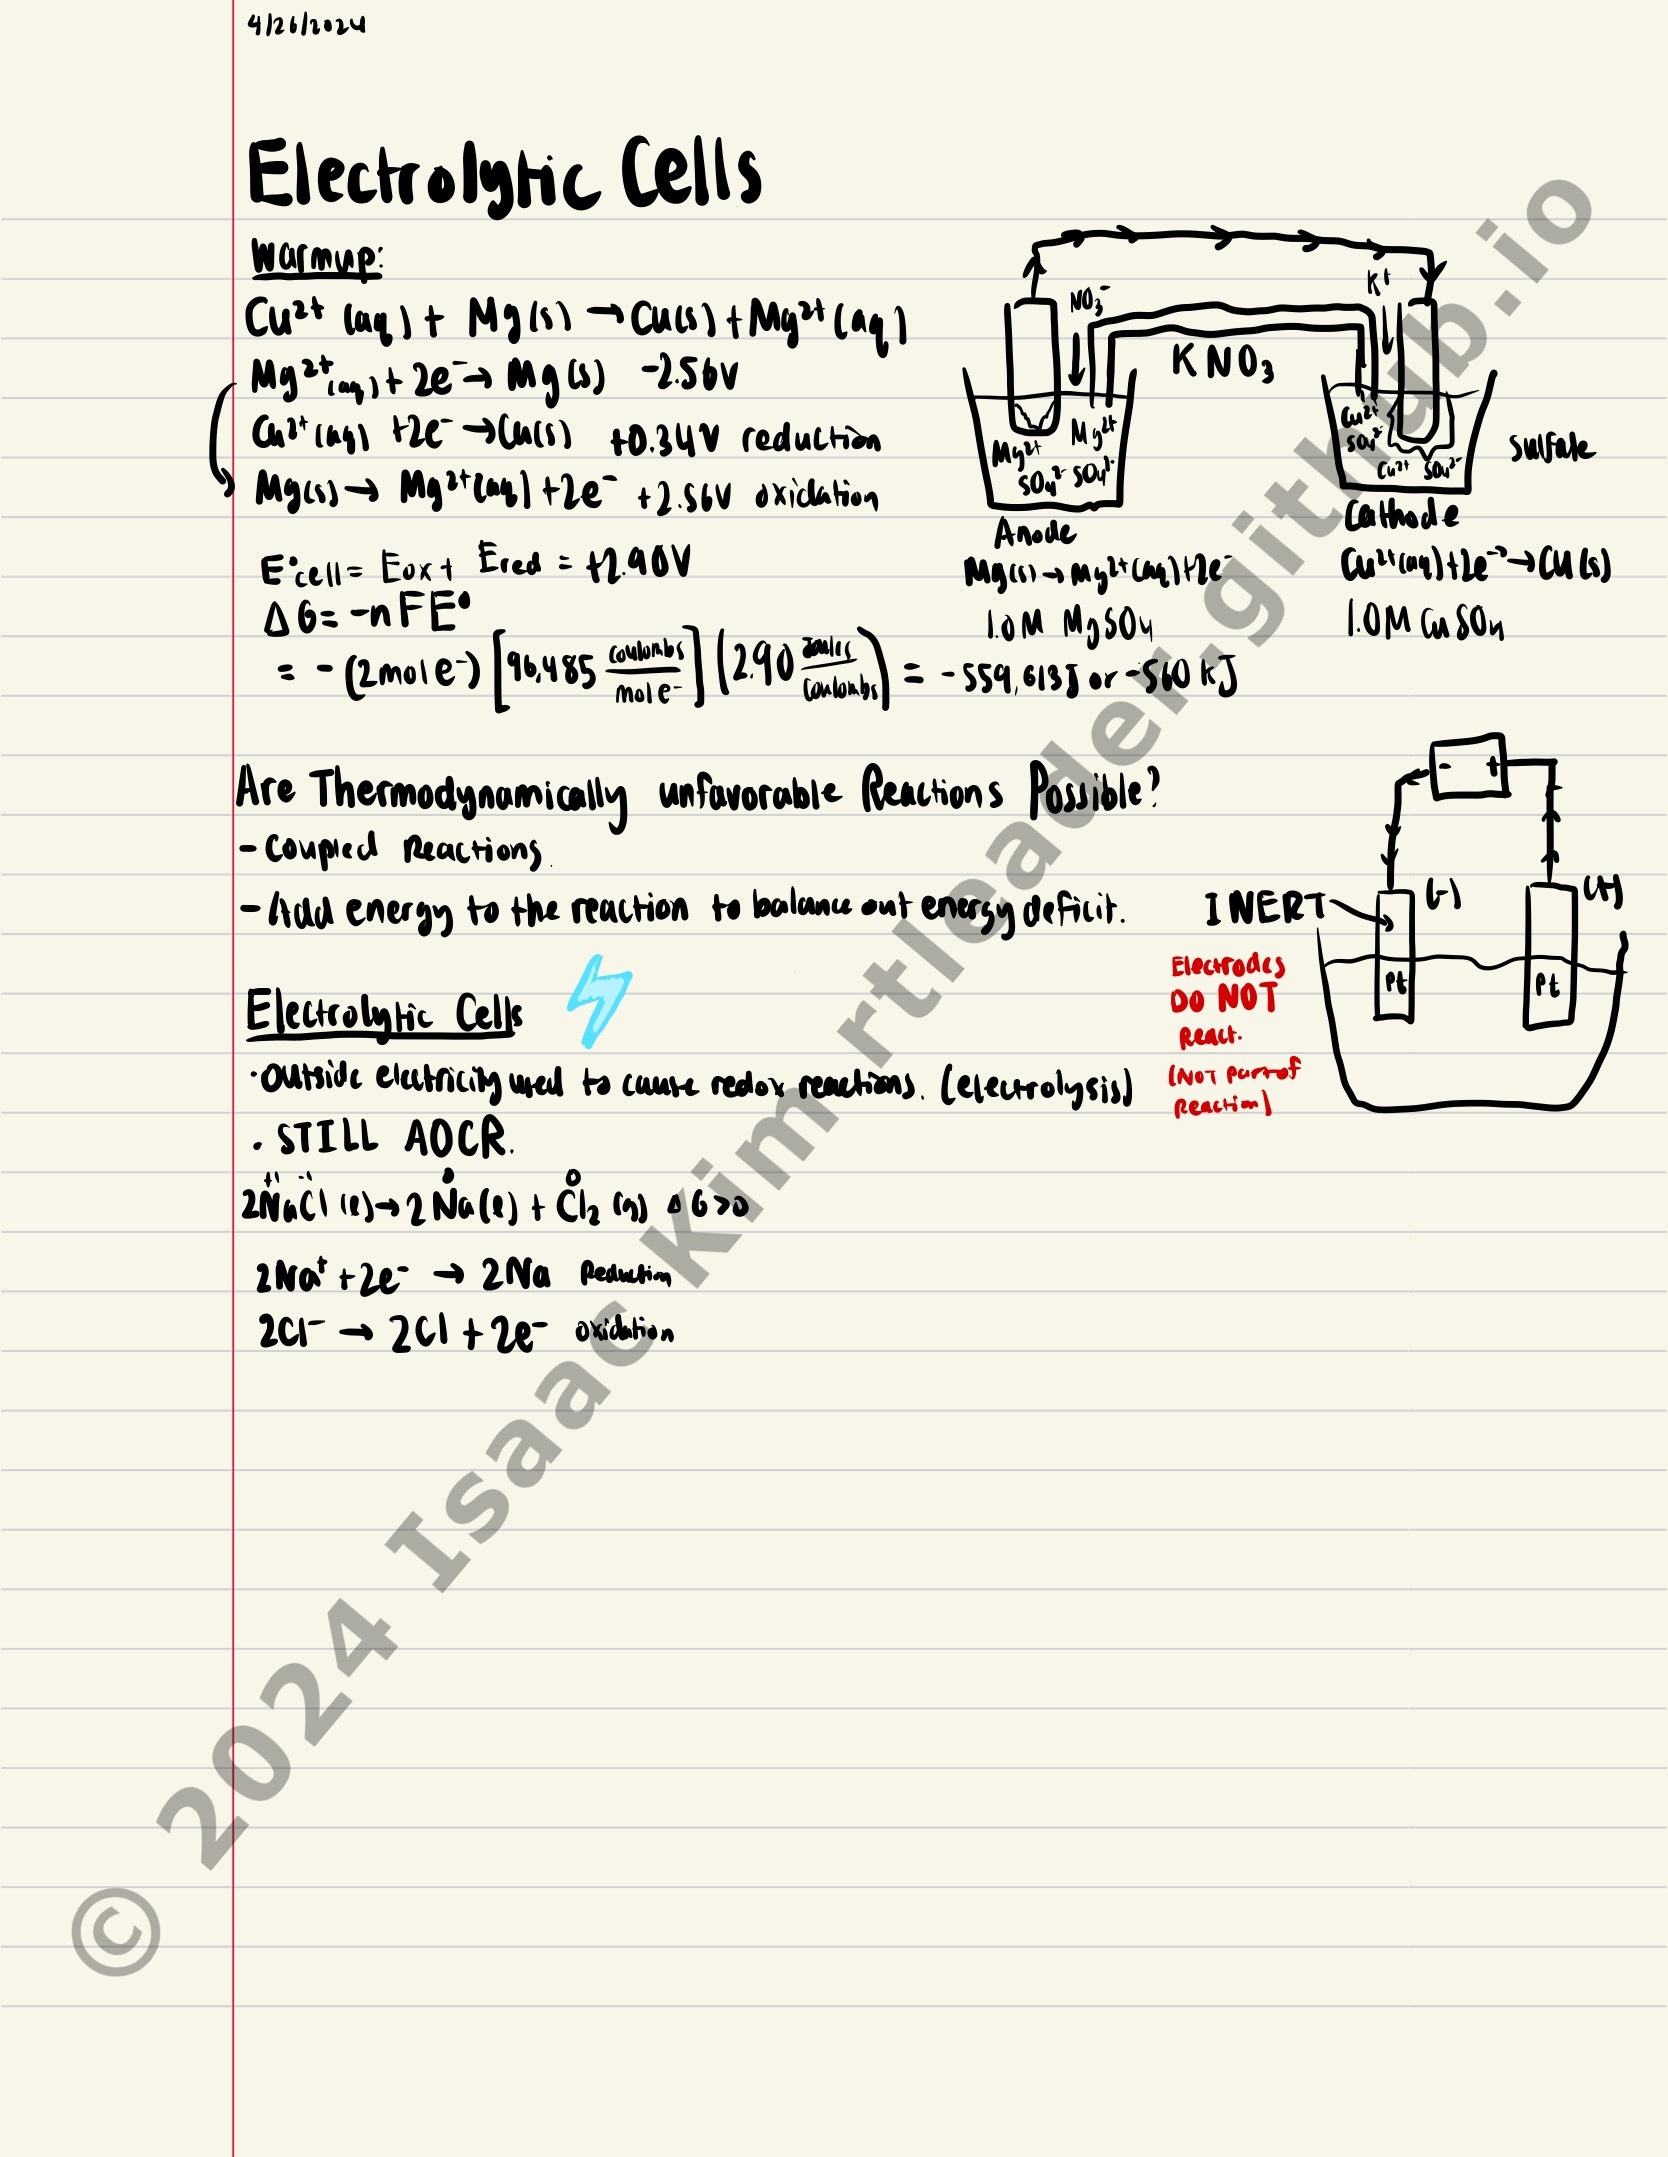 4/26/2024
Electrolytic Cells
Warmup:
Cu²⁺ (aq) + Mg(s) → Cu(s) + Mg²⁺ (aq)
Mg²⁺(aq) + 2e⁻ → Mg(s) -2.56V
Cu²⁺(aq) +2e⁻ → Cu(s) +0.34V reduction
Mg(s) → Mg²⁺(aq) + 2e⁻ +2.56V oxidation
E°cell = Eox + Ered = +2.90V
ΔG = -nFE°
= -(2 mol e⁻) [96,485 coulombs / mol e⁻] (2.90 Joules / Coulombs) = -559,613J or -560 kJ
NO₃⁻
K⁺
KNO₃
Mg²⁺ Mg²⁺
SO₄²⁻ SO₄²⁻
Cu²⁺
SO₄²⁻
Cu²⁺ SO₄²⁻
Sulfate
Anode
Mg(s) → Mg²⁺(aq) + 2e⁻
1.0M MgSO₄
Cathode
Cu²⁺(aq) + 2e⁻ → Cu(s)
1.0M CuSO₄
Are Thermodynamically unfavorable Reactions Possible?
- Coupled Reactions.
- Add energy to the reaction to balance out energy deficit.
- +
(-) (+)
INERT
Pt Pt
Electrodes
DO NOT
React.
(NOT part of
Reaction)
Electrolytic Cells
· Outside electricity used to cause redox reactions. (electrolysis)
. STILL AOCR.
+1 -1 0 0
2NaCl (l) → 2Na(l) + Cl₂ (g) ΔG>0
2Na⁺ + 2e⁻ → 2Na Reduction
2Cl⁻ → 2Cl + 2e⁻ oxidation
© 2024 Isaac Kim rtleader.github.io